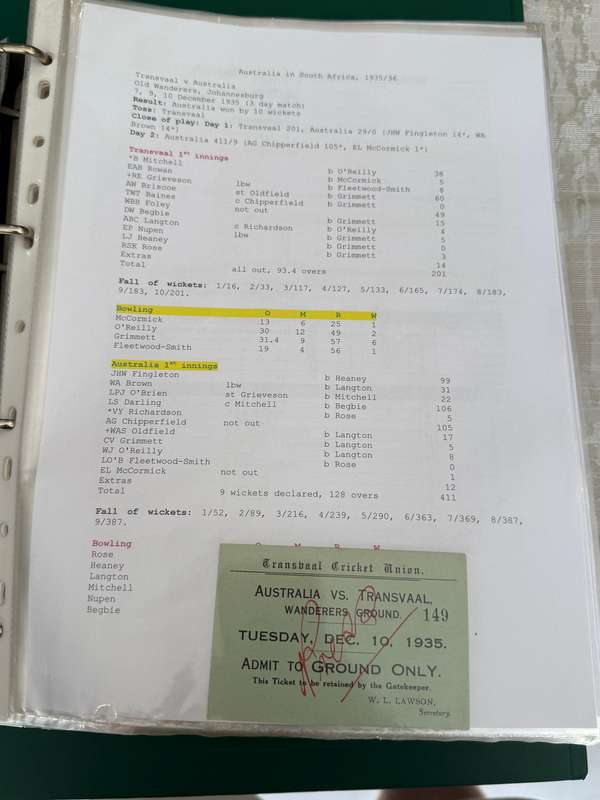 Australia in South Africa, 1935/36
Transvaal v Australia
Old Wanderers, Johannesburg
7, 9, 10 December 1935 (3 day match)
Result: Australia won by 10 wickets
Toss: Transvaal
Close of play: Day 1: Transvaal 201, Australia 29/0 (JHW Fingleton 14*, WA
Brown 14*)
Day 2: Australia 411/9 (AG Chipperfield 105*, EL McCormick 1*)
Transvaal 1st innings
*B Mitchell b O'Reilly 38
EAB Rowan b McCormick 5
+RE Grieveson lbw b Fleetwood-Smith 8
AW Briscoe st Oldfield b Grimmett 60
TWT Baines c Chipperfield b Grimmett 0
WBB Foley not out 49
DW Begbie b Grimmett 15
ABC Langton c Richardson b O'Reilly 4
EP Nupen lbw b Grimmett 5
LJ Heaney b Grimmett 0
RSK Rose b Grimmett 3
Extras 14
Total all out, 93.4 overs 201
Fall of wickets: 1/16, 2/33, 3/117, 4/127, 5/133, 6/165, 7/174, 8/183,
9/183, 10/201.
Bowling O M R W
McCormick 13 6 25 1
O'Reilly 30 12 49 2
Grimmett 31.4 9 57 6
Fleetwood-Smith 19 4 56 1
Australia 1st innings
JHW Fingleton b Heaney 99
WA Brown lbw b Langton 31
LPJ O'Brien st Grieveson b Mitchell 22
LS Darling c Mitchell b Begbie 106
*VY Richardson b Rose 5
AG Chipperfield not out 105
+WAS Oldfield b Langton 17
CV Grimmett b Langton 5
WJ O'Reilly b Langton 8
LO'B Fleetwood-Smith b Rose 0
EL McCormick not out 1
Extras 12
Total 9 wickets declared, 128 overs 411
Fall of wickets: 1/52, 2/89, 3/216, 4/239, 5/290, 6/363, 7/369, 8/387,
9/387.
Bowling O M R W
Rose
Heaney
Langton
Mitchell
Nupen
Begbie
Transvaal Cricket Union.
AUSTRALIA VS. TRANSVAAL,
WANDERERS GROUND. 149
TUESDAY, DEC. 10, 1935.
ADMIT TO GROUND ONLY.
This Ticket to be retained by the Gatekeeper.
W. L. LAWSON,
Secretary.